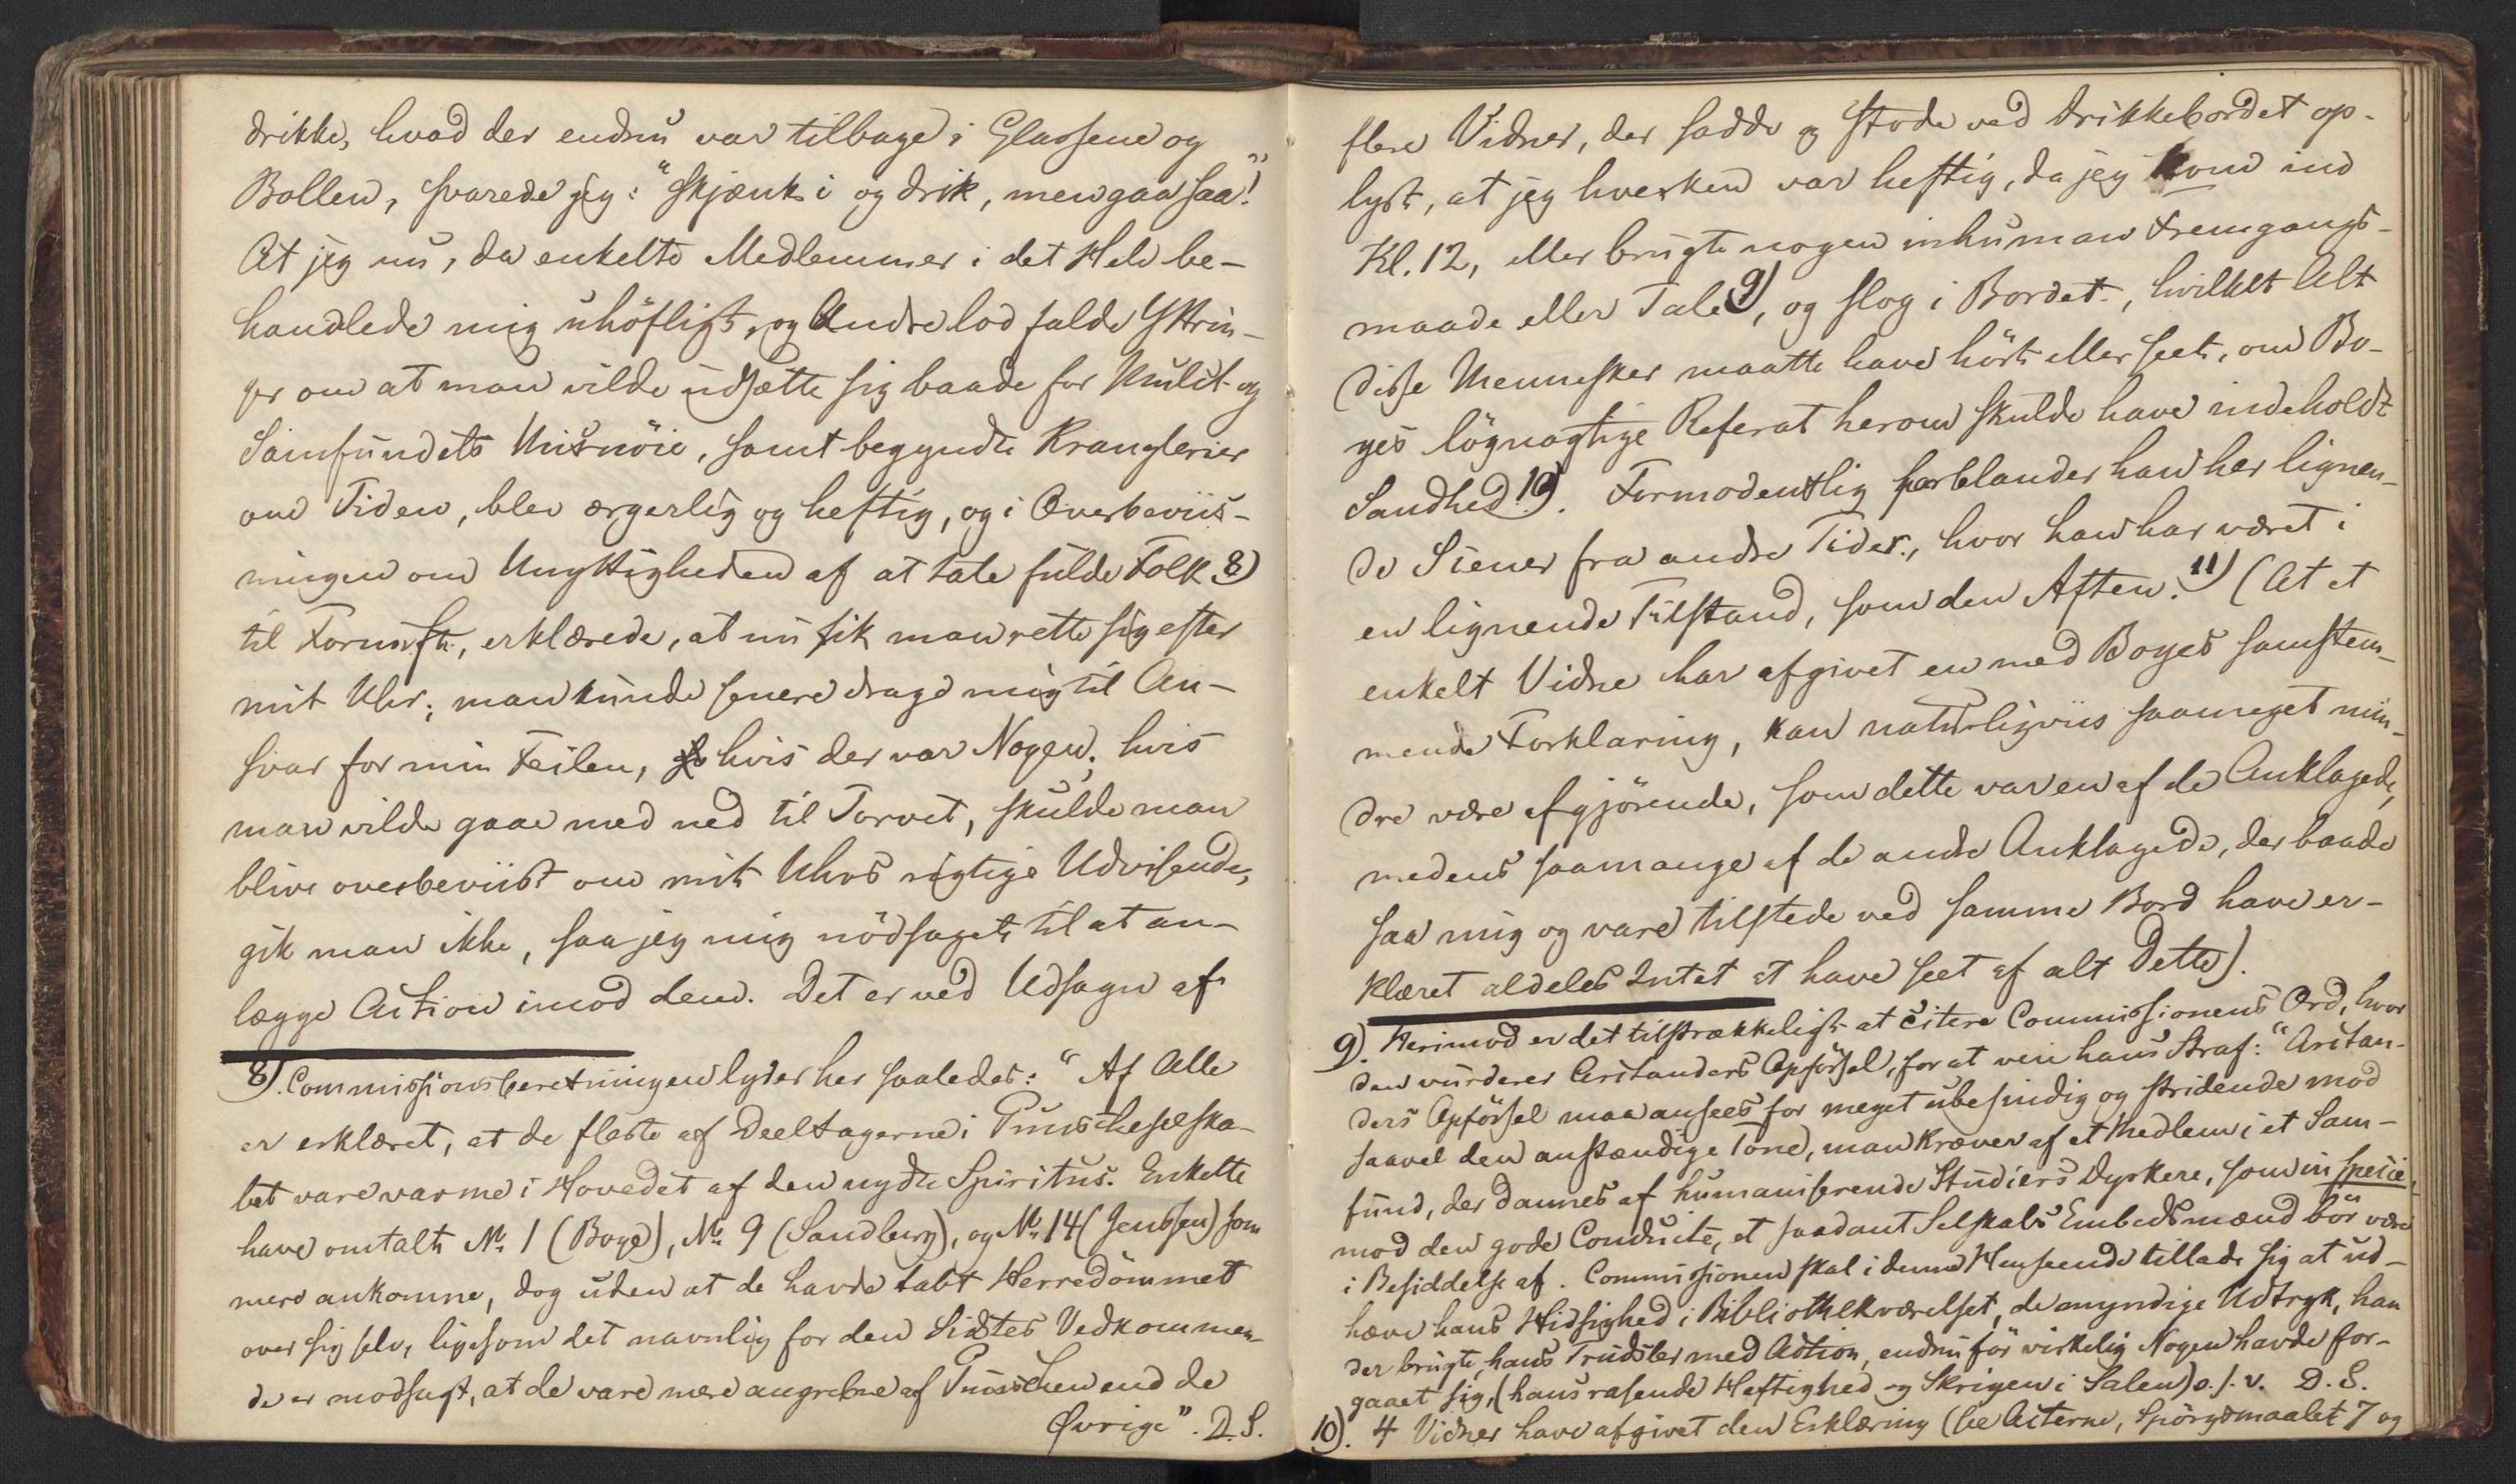 drikke, hvad der endnu var tilbage i Glassene og
Bollen, svarede jeg: "skjænk i og drik, men gaa saa!"
At jeg nu, da enkelte Medlemmer i det Hele be-
handlede mig uhöfligt, og Andre lod falde Yttrin-
ger om at man vilde udsætte sig baade for Mulct og
Samfundets Misnöie, samt begyndte Kranglerier
om Tiden, blev ærgerlig og heftig, og i Overbeviis-
ningen om Unyttigheden af at tale fulde Folk 8)
til Fornuft, erklærede, at nu fik man rette sig efter
mit Uhr; man kunde senere drage mig til An-
svar for min Feilen, hvis der var Nogen; hvis
man vilde gaae med ned til Torvet, skulde man
blive overbeviist om mit Uhrs rigtige Udvisende,
gik man ikke, saa jeg mig nödsaget til at an-
lægge Action imod dem. Det er ved Udsagn af
8). Commissionsberetningen lyder her saaledes: "Af Alle
er erklæret, at de fleste af Deeltagerne i Punscheselska-
bet vare varme i Hovedet af den nydte Spiritus. Enkelte
have omtalt No. 1 (Boye), No. 9 (Sandberg), og No. 14 (Jenssen) som
mere ankomne, dog uden at de havde tabt Herredömmet
over sig selv, ligesom det navnlig for den Sidstes Vedkommen-
de er modsagt, at de vare mere angrebne af Punschen end de
Øvrige". D. S.
flere Vidner, der sadde og stode ved Drikkebordet op-
lyst, at jeg hverken var heftig, da jeg kom ind
Kl. 12, eller brugte nogen inhuman Fremgangs-
maade eller Tale 9), og slog i Bordet, hvilket Alt
disse Mennesker maatte have hört eller seet, om Bo-
yes lögnagtige Referat herom skulde have indeholdt
Sandhed 10). Formodentlig forblander han her lignen-
de Scener fra andre Tider, hvor han har været i
en lignende Tilstand, som den Aften. 11) (At et
enkelt Vidne har afgivet en med Boyes samstem-
mende Forklaring, kan naturligviis saameget min-
dre være afgjörende, som dette var en af de Anklagede,
medens saamange af de andre Anklagede, der baade
saa mig og vare tilstede ved samme Bord have er-
klæret aldeles Intet at have seet af alt Dette).
9). Herimod er det tilstrækkeligt at citere Commissionens Ord, hvor
den vurderer Aristanders Opförsel, for at veie hans Straf: "Aristan-
ders Opförsel maa ansees for meget ubesindig og stridende mod
saavel den anstændige Tone, man kræver af et Medlem i et Sam-
fund, der dannes af humaniserende Studiers Dyrkere, som in specie
mod den gode Conduite, et saadant Selskabs Embedsmænd bör være
i Besiddelse af. Commissionen skal i denne Henseende tillade sig at ud-
hæve hans Hidsighed i Bibliothekværelset, de myndige Udtryk, han
der brugte, hans Trudsler med Action, endnu för virkelig Nogen havde for-
gaaet sig, (hans rasende Heftighed og Skrigen i Salen) o. s. v. D. S.
10). 4 Vidner have afgivet den Erklæring (see Acterne, Spörgsmaalet 7 og